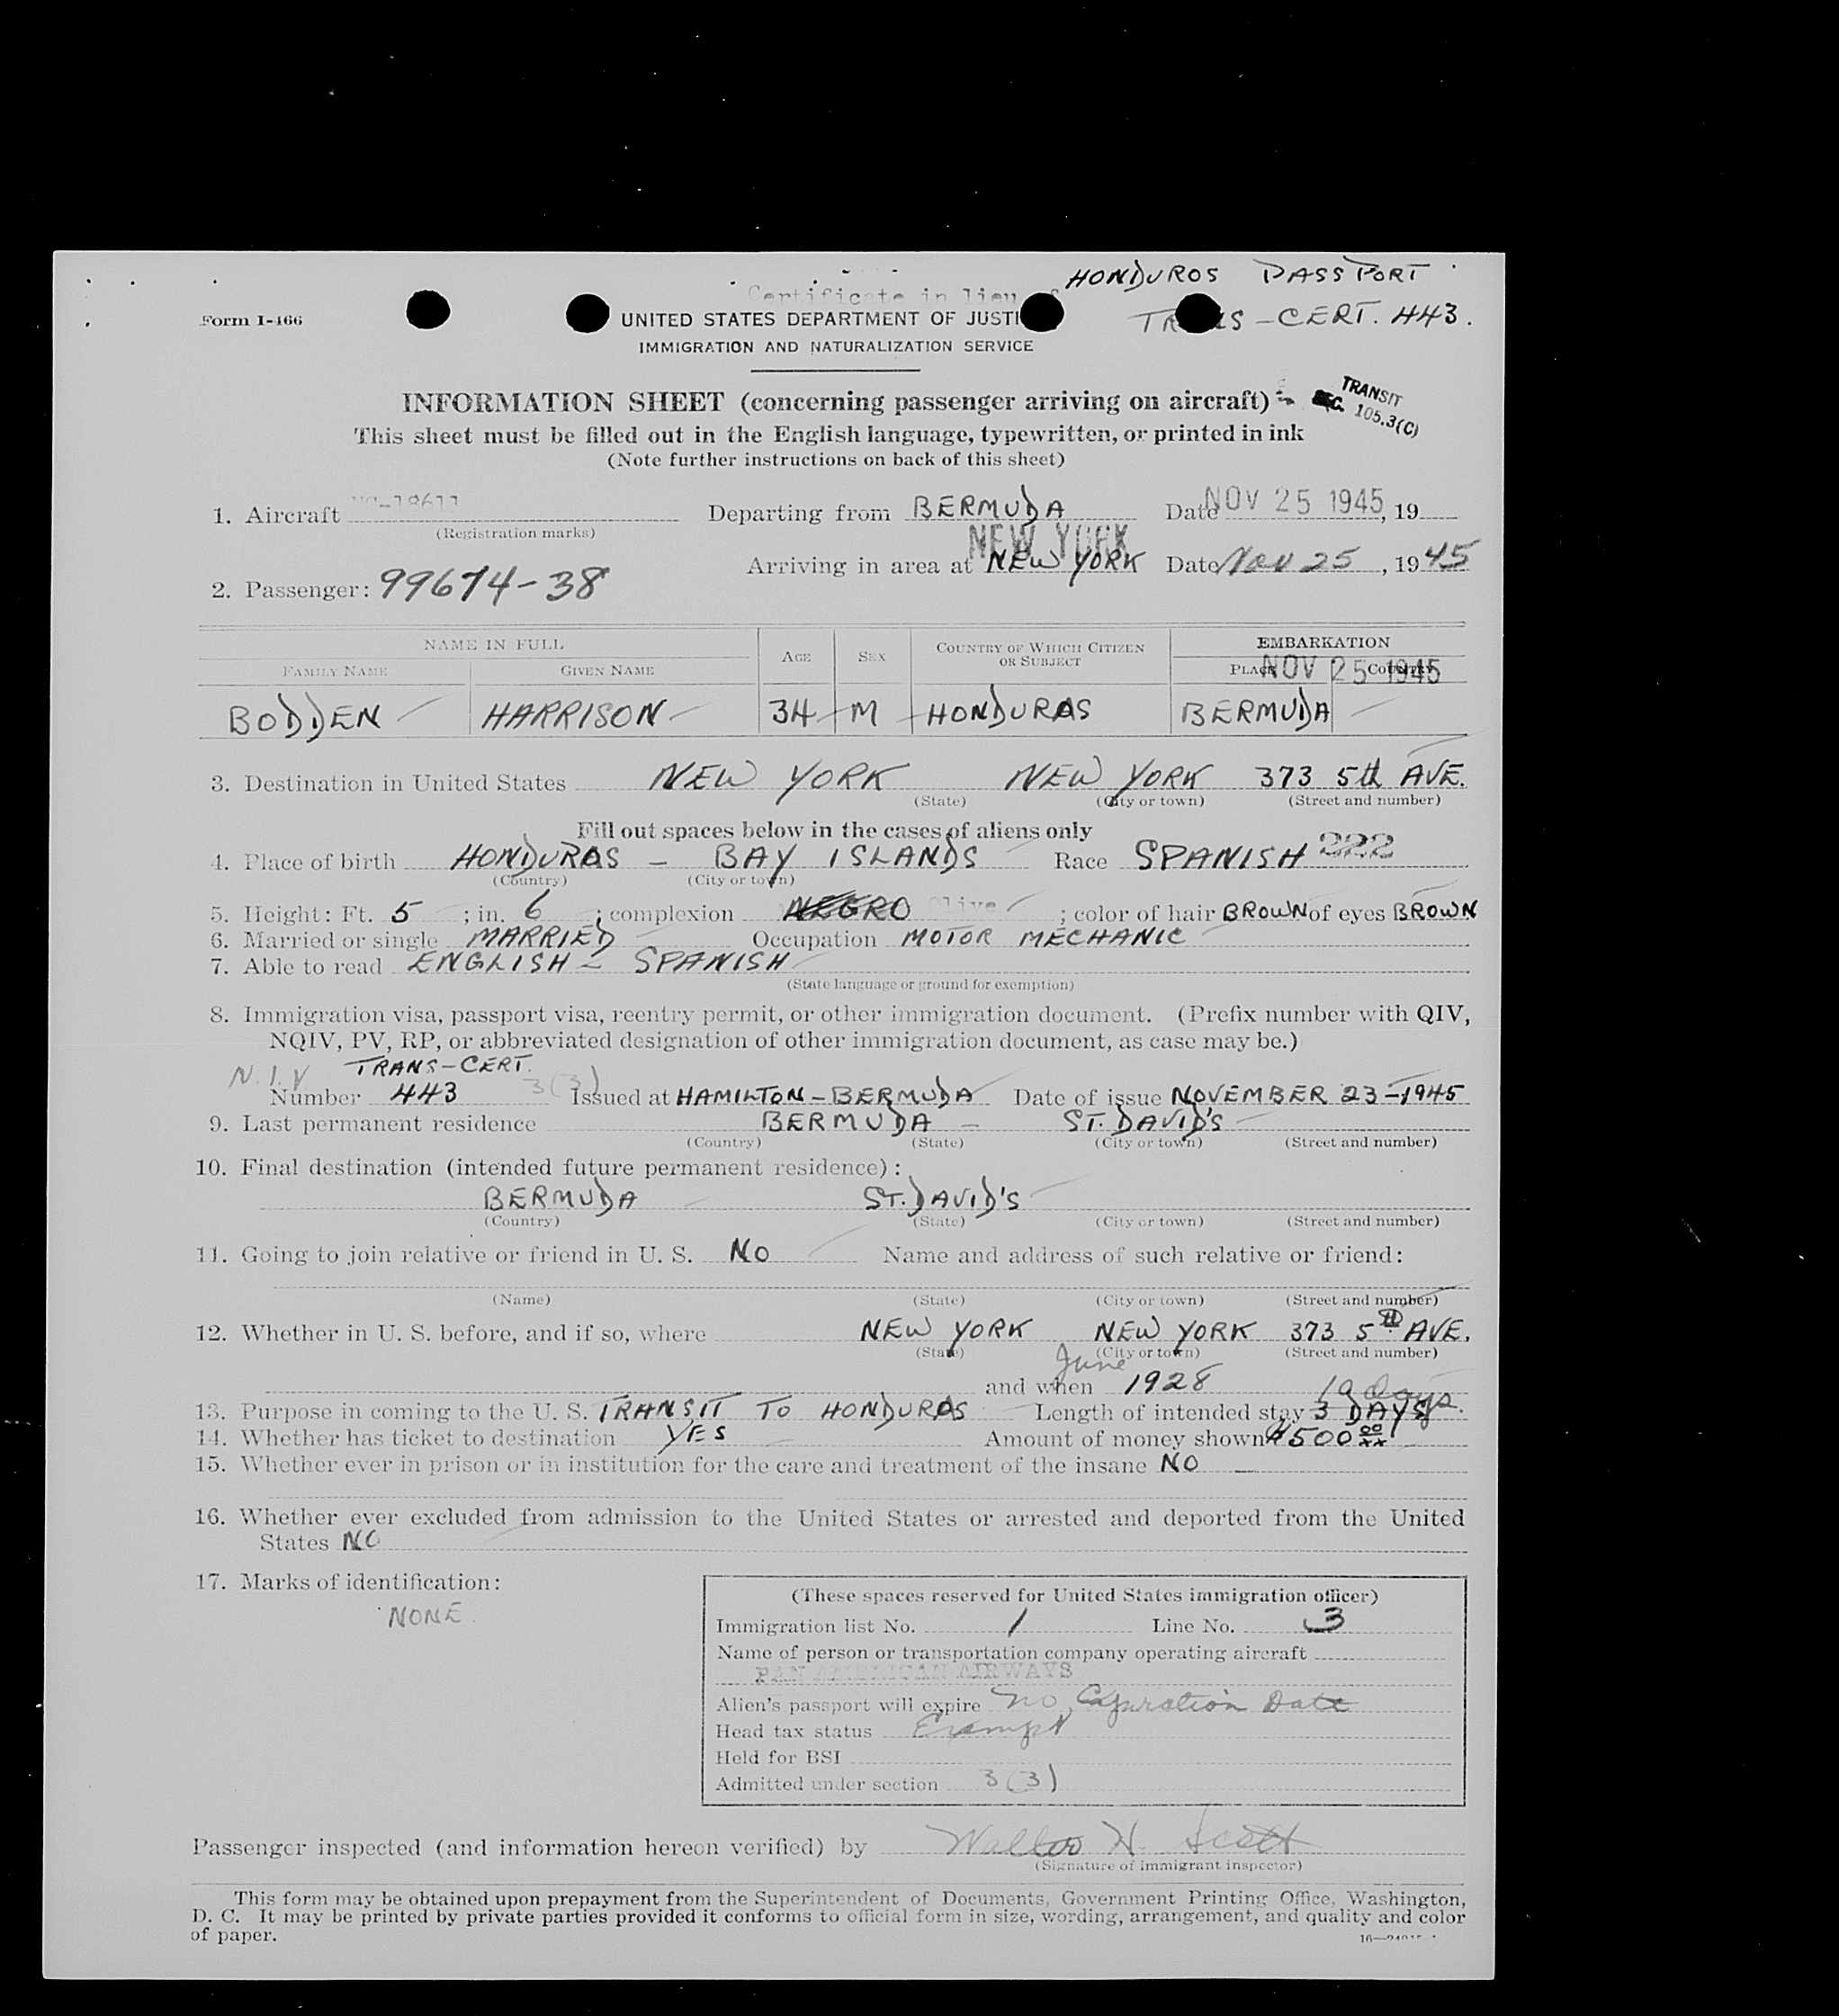 Certificate in lieu HONDUROS PASSPORT
Form I-466
UNITED STATES DEPARTMENT OF JUSTI TRANS-CERT. 443.
IMMIGRATION AND NATURALIZATION SERVICE
INFORMATION SHEET (concerning passenger arriving on aircraft)
TRANSIT
SEC. 105.3(C)
This sheet must be filled out in the English language, typewritten, or printed in ink
(Note further instructions on back of this sheet)
1. Aircraft NC-18611 Departing from BERMUDA Date NOV 25 1945, 19
(Registration marks)
NEW YORK
Arriving in area at NEW YORK Date Nov 25, 1945
2. Passenger: 99674-38
NAME IN FULL AGE SEX COUNTRY OF WHICH CITIZEN OR SUBJECT EMBARKATION
FAMILY NAME GIVEN NAME PLACE COUNTRY
NOV 25 1945
BODDEN HARRISON 34 M HONDURAS BERMUDA
3. Destination in United States NEW YORK NEW YORK 373 5th AVE.
(State) (City or town) (Street and number)
Fill out spaces below in the cases of aliens only
4. Place of birth HONDURAS - BAY ISLANDS Race SPANISH 222
(Country) (City or town)
5. Height: Ft. 5 ; in. 6 ; complexion NEGRO Olive ; color of hair BROWN of eyes BROWN
6. Married or single MARRIED Occupation MOTOR MECHANIC
7. Able to read ENGLISH - SPANISH
(State language or ground for exemption)
8. Immigration visa, passport visa, reentry permit, or other immigration document. (Prefix number with QIV,
NQIV, PV, RP, or abbreviated designation of other immigration document, as case may be.)
N.I.V TRANS-CERT.
Number 443 3(3) Issued at HAMILTON-BERMUDA Date of issue NOVEMBER 23-1945
9. Last permanent residence BERMUDA - ST. DAVID'S
(Country) (State) (City or town) (Street and number)
10. Final destination (intended future permanent residence):
BERMUDA ST. DAVID'S
(Country) (State) (City or town) (Street and number)
11. Going to join relative or friend in U. S. NO Name and address of such relative or friend:
(Name) (State) (City or town) (Street and number)
12. Whether in U. S. before, and if so, where NEW YORK NEW YORK 373 5th AVE.
(State) (City or town) (Street and number)
June
and when 1928
13. Purpose in coming to the U. S. TRANSIT TO HONDURAS Length of intended stay 3 DAYS 10 Days.
14. Whether has ticket to destination YES Amount of money shown $500 00/xx
15. Whether ever in prison or in institution for the care and treatment of the insane NO
16. Whether ever excluded from admission to the United States or arrested and deported from the United
States NO
17. Marks of identification:
NONE
(These spaces reserved for United States immigration officer)
Immigration list No. 1 Line No. 3
Name of person or transportation company operating aircraft
PAN AMERICAN AIRWAYS
Alien's passport will expire No Expiration Date
Head tax status Exempt
Held for BSI
Admitted under section 3(3)
Passenger inspected (and information hereon verified) by Walter H. Scott
(Signature of immigrant inspector)
This form may be obtained upon prepayment from the Superintendent of Documents, Government Printing Office, Washington,
D. C. It may be printed by private parties provided it conforms to official form in size, wording, arrangement, and quality and color
of paper.